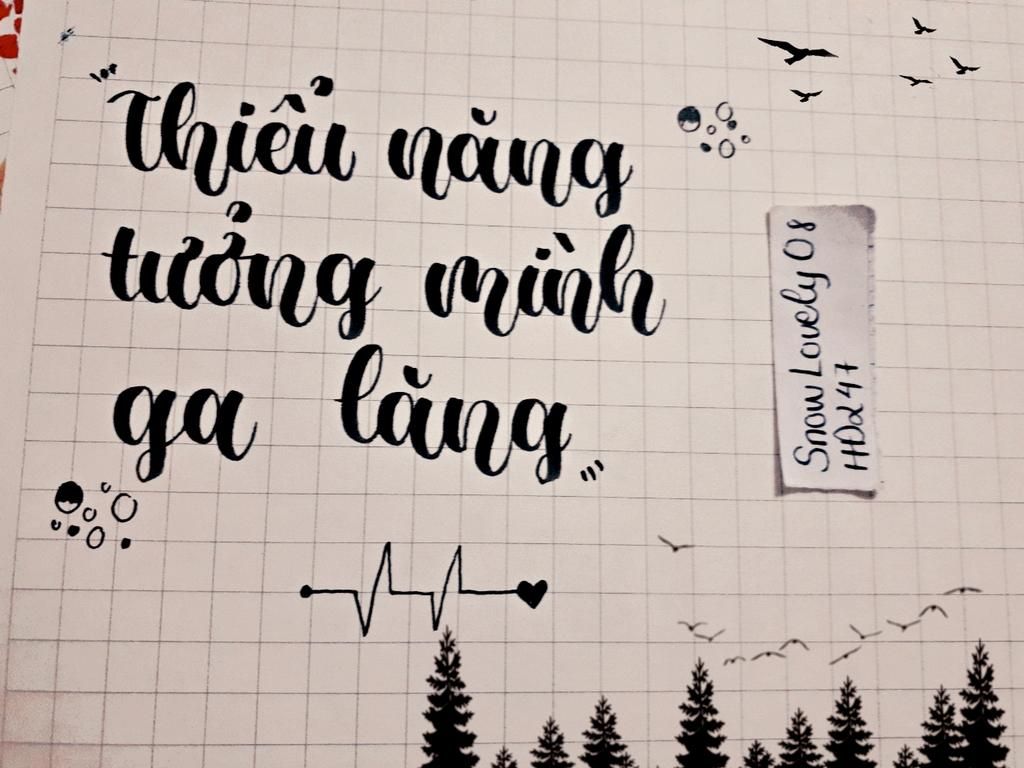 "Thiểu năng
tưởng mình
ga lăng"
Snow Lovely 08
HDα 47